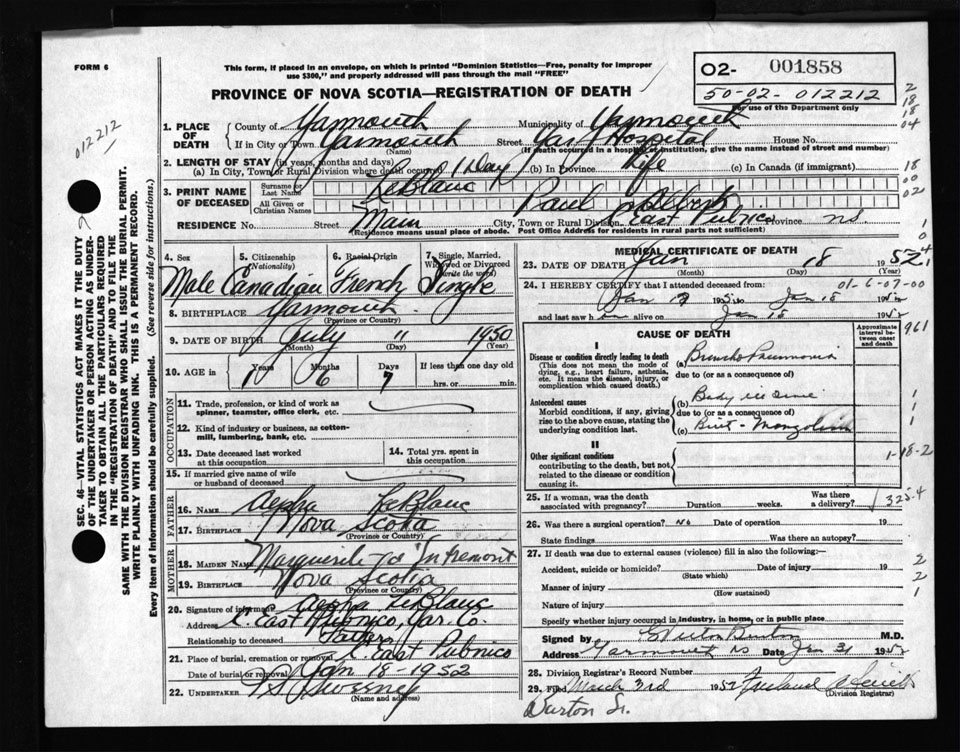 FORM 6
This form, if placed in an envelope, on which is printed "Dominion Statistics—Free, penalty for improper
use $300," and properly addressed will pass through the mail "FREE"
PROVINCE OF NOVA SCOTIA—REGISTRATION OF DEATH
O2- 001858
50-02-012212
For use of the Department only
012212
2
18
18
04
18
00
02
1. PLACE OF DEATH
County of Yarmouth Municipality of Yarmouth
If in City or Town Yarmouth Street Yar. Hospital House No.
(Name) (If death occurred in a hospital or institution, give the name instead of street and number)
2. LENGTH OF STAY (in years, months and days)
(a) In City, Town or Rural Division where death occurred 1 Day (b) In Province Life (c) In Canada (if immigrant)
3. PRINT NAME OF DECEASED
Surname or Last Name LeBlanc
All Given or Christian Names Paul Albert
RESIDENCE No. Street Main City, Town or Rural Division East Pubnico Province NS.
(Residence means usual place of abode. Post Office Address for residents in rural parts not sufficient)
4. Sex
5. Citizenship (Nationality)
6. Racial Origin
7. Single, Married, Widowed or Divorced (Write the word)
Male Canadian French Single
8. BIRTHPLACE Yarmouth
(Province or Country)
9. DATE OF BIRTH July 11 1950
(Month) (Day) (Year)
10. AGE in Years Months Days If less than one day old
1 6 7 hrs. or min.
OCCUPATION
11. Trade, profession, or kind of work as spinner, teamster, office clerk, etc.
12. Kind of industry or business, as cotton-mill, lumbering, bank, etc.
13. Date deceased last worked at this occupation
14. Total yrs. spent in this occupation
15. If married give name of wife or husband of deceased
FATHER
16. NAME Alpha LeBlanc
17. BIRTHPLACE Nova Scotia
(Province or Country)
MOTHER
18. MAIDEN NAME Marguerite d'Entremont
19. BIRTHPLACE Nova Scotia
(Province or Country)
20. Signature of informant Alpha LeBlanc
Address C. East Pubnico, Yar. Co.
Relationship to deceased Father
21. Place of burial, cremation or removal C. East Pubnico
Date of burial or removal Jan 18-1952
22. UNDERTAKER Sweeney
(Name and address)
MEDICAL CERTIFICATE OF DEATH
23. DATE OF DEATH Jan 18 1952
(Month) (Day) (Year)
24. I HEREBY CERTIFY that I attended deceased from: 01-6-07-00
Jan 17 1952 to Jan 18 1952
and last saw h alive on Jan 18 1952
CAUSE OF DEATH
Approximate interval between onset and death
961
I
Disease or condition directly leading to death
(This does not mean the mode of dying, e.g., heart failure, asthenia, etc. It means the disease, injury, or complication which caused death.)
(a) Broncho Pneumonia
due to (or as a consequence of)
Antecedent causes
Morbid conditions, if any, giving rise to the above cause, stating the underlying condition last.
(b) Baby ill since
due to (or as a consequence of)
(c) Birth - Mongolism
II
Other significant conditions
contributing to the death, but not related to the disease or condition causing it.
1-18-2
25. If a woman, was the death associated with pregnancy? Duration weeks. Was there a delivery?
325.4
26. Was there a surgical operation? No Date of operation 19
State findings Was there an autopsy?
27. If death was due to external causes (violence) fill in also the following:—
Accident, suicide or homicide? Date of injury 19
(State which)
Manner of injury
(How sustained)
Nature of injury
Specify whether injury occurred in industry, in home, or in public place
Signed by G Victor Burton M.D.
Address Yarmouth NS Date Jan 31 1952
28. Division Registrar's Record Number
29. Filed March 3rd 1952
(Division Registrar)
Burton Jr.
SEC. 46—VITAL STATISTICS ACT MAKES IT THE DUTY
OF THE UNDERTAKER OR PERSON ACTING AS UNDER-
TAKER TO OBTAIN ALL THE PARTICULARS REQUIRED
IN THE "REGISTRATION OF DEATH" AND TO FILE THE
SAME WITH THE DIVISION REGISTRAR WHO SHALL ISSUE THE BURIAL PERMIT.
WRITE PLAINLY WITH UNFADING INK. THIS IS A PERMANENT RECORD.
Every item of information should be carefully supplied. (See reverse side for instructions.)